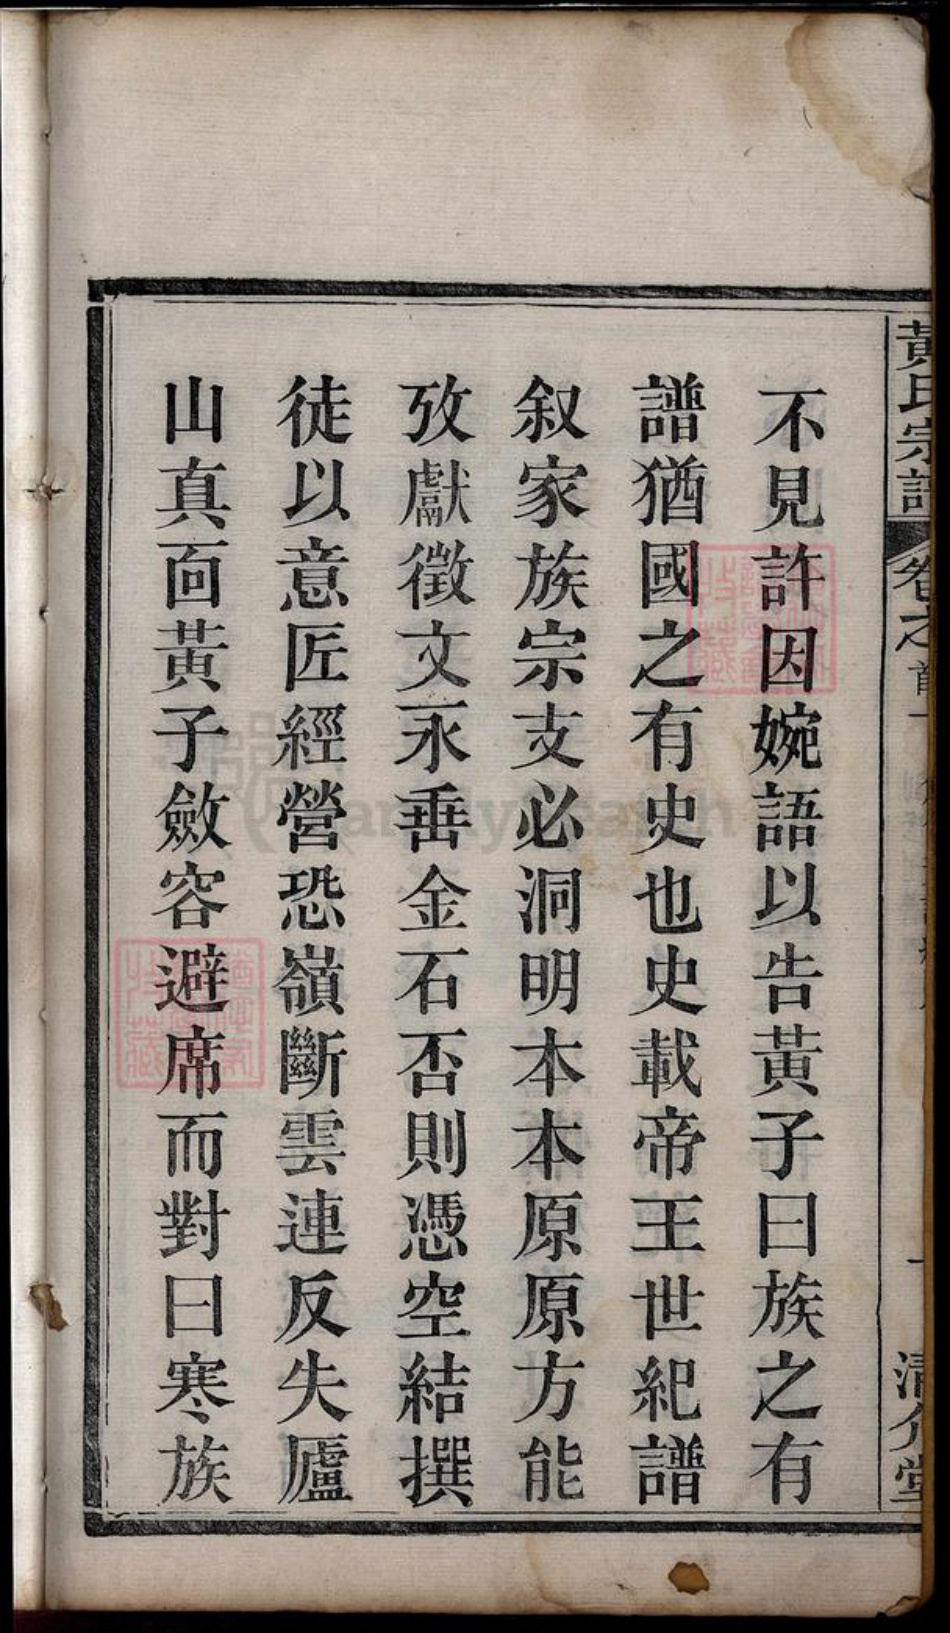 黃氏宗譜
卷之首
清介堂
不見許因婉語以告黃子曰族之有
譜猶國之有史也史載帝王世紀譜
叙家族宗支必洞明本本原原方能
攷獻徵文永垂金石否則憑空結撰
徒以意匠經營恐嶺斷雲連反失廬
山真面黃子斂容避席而對曰寒族